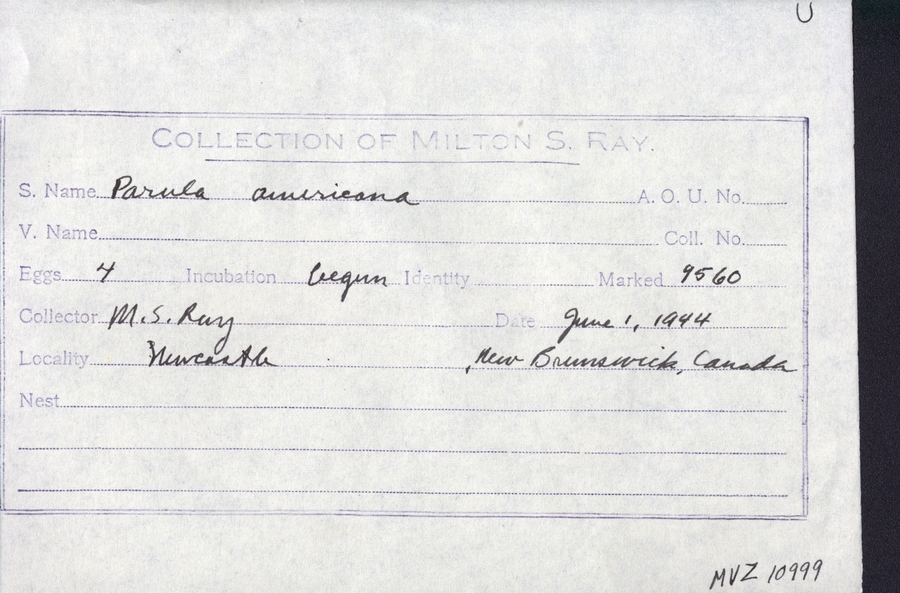 U
COLLECTION OF MILTON S. RAY.
S. Name Parula americana A. O. U. No.
V. Name Coll. No.
Eggs 4 Incubation begun Identity Marked 9560
Collector M. S. Ray Date June 1, 1944
Locality Newcastle , New Brunswick, Canada
Nest
MVZ 10999